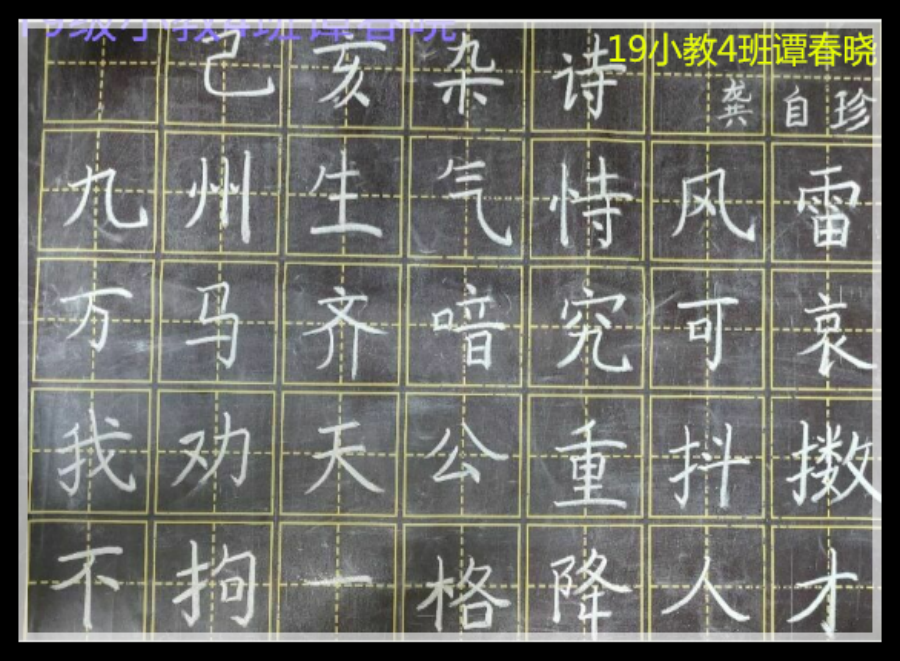 19级小教4班谭春晓
19小教4班谭春晓
己亥杂诗
龚自珍
九州生气恃风雷
万马齐喑究可哀
我劝天公重抖擞
不拘一格降人才